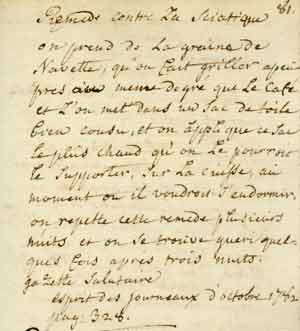 81.
Remede contre La Sciatique
on prend de La graine de
Navette, qu'on fait griller apeu
près au meme degré que Le Café
et L'on met dans un Sac de toile
bien cousu, et on applique ce Sac
le plus chaud qu'on Le pourroit
le Supporter, Sur La cuisse, au
moment ou il voudroit S'endormir.
on repette cette remede plusieurs
nuits et on Se trouve gueri quel-
ques fois apres trois nuits.
gazette Salutaire
esprit des journeaux d'octobre 1782
pag. 328.